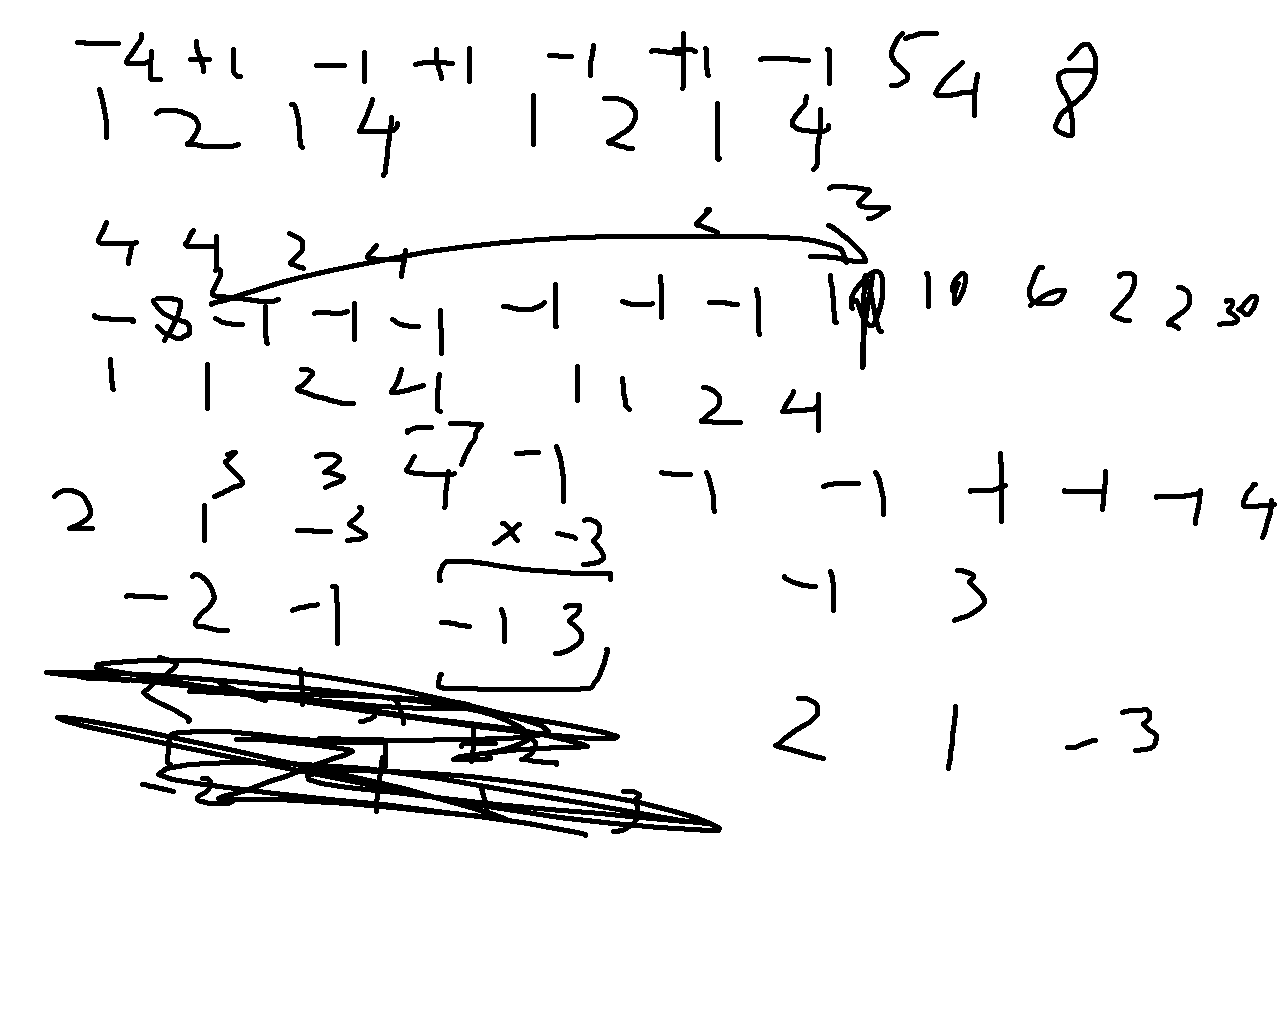 -4 +1 -1 +1 -1 +1 -1 5 4 8
1 2 1 4 1 2 1 4
3
4 4 2 4 2
-8 -1 -1 -1 -1 -1 -1 10 6 2 2 30
1 1 2 4 1 1 2 4
-7
3 3 4 -1 -1 -1 -1 -1 -1 4
2 1 -3 x -3
-2 -1 -1 3 -1 3
2 1 -3